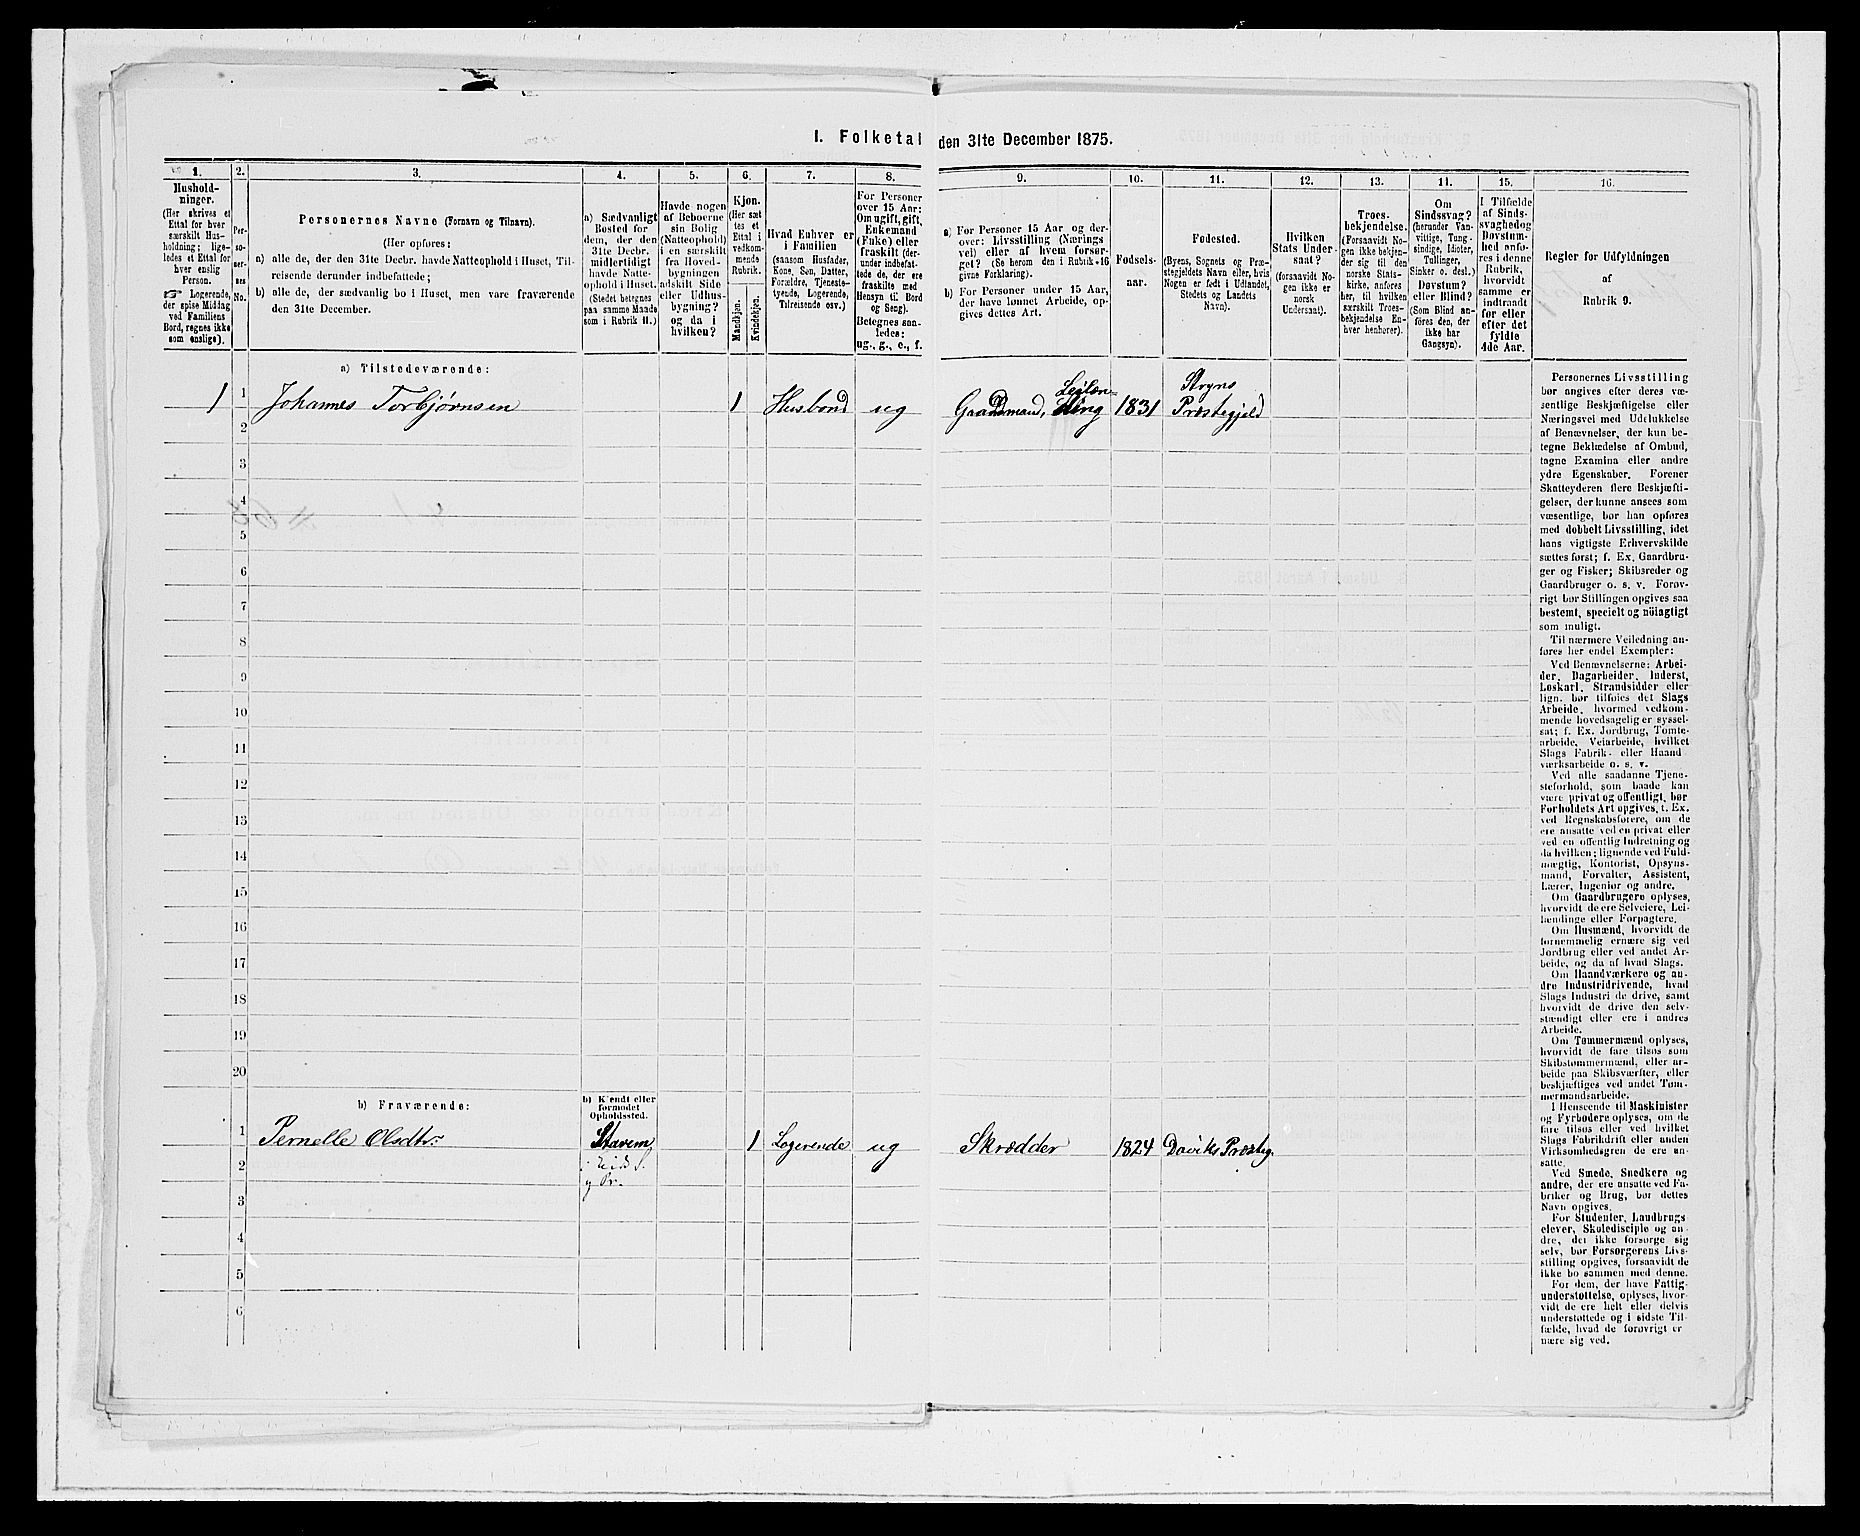 I. Folketal den 31te December 1875.
1.
Hushold-
ninger.
(Her skrives et
Ettal for hver
særskilt Hus-
holdning; lige-
ledes et Ettal for
hver enslig
Person.
☞ Logerende,
der spise Middag
ved Familiens
Bord, regnes ikke
som enslige).
2.
Per-
so-
ner-
nes
No.
3.
Personernes Navne (Fornavn og Tilnavn).
(Her opføres:
a) alle de, der den 31te Decbr. havde Natteophold i Huset, Til-
reisende derunder indbefattede;
b) alle de, der sædvanlig bo i Huset, men vare fraværende
den 31te December.
4.
a) Sædvanligt
Bosted for
dem, der den
31te Decbr.
midlertidigt
havde Natte-
ophold i Huset.
(Stedet betegnes
paa samme Maade
som i Rubrik 11.)
5.
Havde nogen
af Beboerne
sin Bolig
(Natteophold)
i en særskilt
fra Hoved-
bygningen
adskilt Side
eller Udhus-
bygning?
og da i
hvilken?
6.
Kjøn.
(Her sæt
tes et
Ettal i
vedkom-
mende
Rubrik.
Mandkjøn.
Kvindekjøn.
7.
Hvad Enhver er
i Familien
(saasom Husfader,
Kone, Søn, Datter,
Forældre, Tjeneste-
tyende, Logerende,
Tilreisende osv.)
8.
For Personer
over 15 Aar:
Om ugift, gift,
Enkemand
(Enke) eller
fraskilt (der-
under indbefat-
tede de, der ere
fraskilte med
Hensyn til Bord
og Seng).
Betegnes saa-
ledes:
ug., g., e., f.
9.
a) For Personer 15 Aar og der-
over: Livsstilling (Nærings
vei) eller af hvem forsør-
get? (Se herom den i Rubrik 16
givne Forklaring).
b) For Personer under 15 Aar,
der have lønnet Arbeide, op-
gives dettes Art.
10.
Fødsels-
aar.
11.
Fødested.
(Byens, Sognets og Præ-
stegjeldets Navn eller, hvis
Nogen er født i Udlandet,
Stedets og Landets
Navn).
12.
Hvilken
Stats Under-
saat?
(forsaavidt No-
gen ikke er
norsk
Undersaat).
13.
Troes-
bekjendelse.
(Forsaavidt No-
gen ikke bekjen-
der sig til den
norske Stats-
kirke, anføres
her, til hvilken
særskilt Troes-
bekjendelse En-
hver henhører).
14.
Om
Sindssvag?
(herunder Van-
vittige, Tung-
sindige, Idioter,
Tullinger,
Sinker o. desl.)
Døvstum?
eller Blind?
(Som Blind an-
føres den, der
ikke har
Gangsyn).
15.
I Tilfælde
af Sinds-
svaghed og
Døvstum-
hed anfø-
res i denne
Rubrik,
hvorvidt
samme er
indtraadt
før eller
efter det
fyldte
4de Aar.
16.
Regler for Udfyldningen
af
Rubrik 9.
a) Tilstedeværende:
1 1 Johannes Torbjørnsen 1 Husbond ug Gaardmand, Leilæn-
ding 1831 Stryns
Præstegjeld
2
3
4
5
6
7
8
9
10
11
12
13
14
15
16
17
18
19
20
b) Fraværende:
b) Kjendt eller
formodet
Opholdssted.
1 Pernelle Olsdtr. Stavem 1 Logerende ug Skrædder 1824 Daviks Præsteg.
2 i Eids S.
og Pr.
3
4
5
6
Personernes Livsstilling
bør angives efter deres væ-
sentlige Beskjæftigelse eller
Næringsvei med Udelukkelse
af Benævnelser, der kun be-
tegne Beklædelse af Ombud,
tagne Examina eller andre
ydre Egenskaber. Forener
Skatteyderen flere Beskjæfti-
gelser, der kunne ansees som
væsentlige, bør han opføres
med dobbelt Livsstilling, idet
hans vigtigste Erhvervskilde
sættes først; f. Ex. Gaardbru-
ger og Fisker; Skibsreder og
Gaardbruger o. s. v. Forøv-
rigt bør Stillingen opgives saa
bestemt, specielt og nöiagtigt
som muligt.
Til nærmere Veiledning an-
føres her endel Exempler:
Ved Benævnelserne: Arbei-
der, Dagarbeider, Inderst,
Løskarl, Strandsidder eller
lign. bør tilføies det Slags
Arbeide, hvormed vedkom-
mende hovedsagelig er syssel-
sat; f. Ex. Jordbrug, Tomte-
arbeide, Veiarbeide, hvilket
Slags Fabrik- eller Haand
værksarbeide o. s. v.
Ved alle saadanne Tjene-
steforhold, som baade kan
være privat og offentligt, bør
Forholdets Art opgives, t. Ex.
ved Regnskabsførere, om de
ere ansatte ved en privat eller
ved en offentlig Indretning og
da hvilken; lignende ved Fuld-
mægtig, Kontorist, Opsyns-
mand, Forvalter, Assistent,
Lærer, Ingeniør og andre.
Om Gaardbrugere oplyses,
hvorvidt de ere Selveiere, Lei-
lændinge eller Forpagtere.
Om Husmænd, hvorvidt de
fornemmelig ernære sig ved
Jordbrug eller ved andet Ar-
beide, og da af hvad Slags.
Om Haandværkere og an-
dre Industridrivende, hvad
Slags Industri de drive, samt
hvorvidt de drive den selv-
stændigt eller ere i andres
Arbeide.
Om Tømmermænd oplyses,
hvorvidt de fare tilsøs som
Skibstømmermænd, eller ar-
beide paa Skibsværfter, eller
beskjæftiges ved andet Tøm-
mermandsarbeide.
I Henseende til Maskinister
og Fyrbødere oplyses, om de
fare tilsøs eller ved hvilket
Slags Fabrikdrift eller anden
Virksomhedsgren de ere an-
satte.
Ved Smede, Snedkere og
andre, der ere ansatte ved Fa-
briker og Brug, bør dettes
Navn opgives.
For Studenter, Landbrugs
elever, Skoledisciple og an-
dre, der ikke forsørge sig
selv, bør Forsørgerens Livs-
stilling opgives, forsaavidt de
ikke bo sammen med denne.
For dem, der have Fattig-
understøttelse, oplyses, hvor-
vidt de ere helt eller delvis
understøttede og i sidste Til-
fælde, hvad de forøvrigt er
nære sig ved.